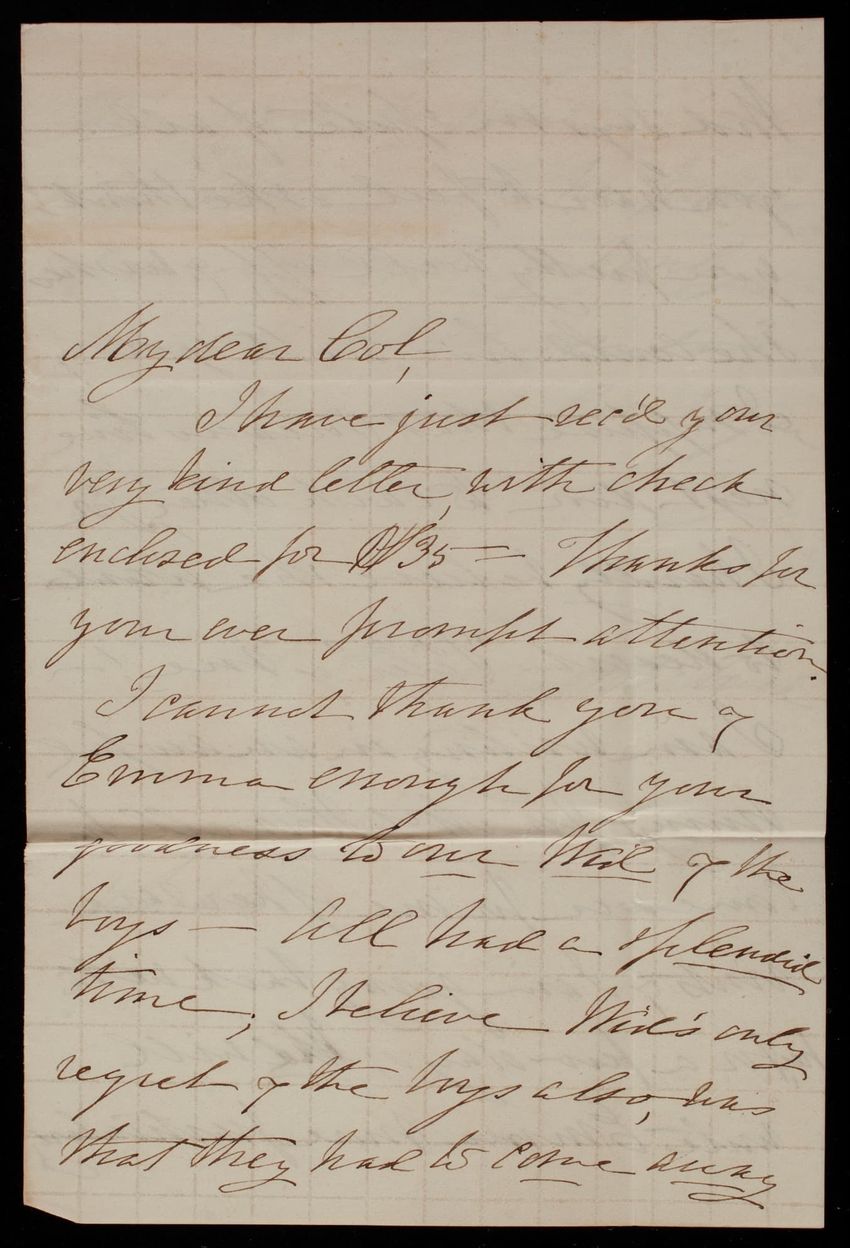 My dear Col,
I have just rec'd your
very kind letter, with check
enclosed for $35 — Thanks for
your ever prompt attention.
I cannot thank you &
Emma enough for your
goodness to our Wid & the
boys — All had a splendid
time; I believe Wid's only
regret & the boys also, was
that they had to come away